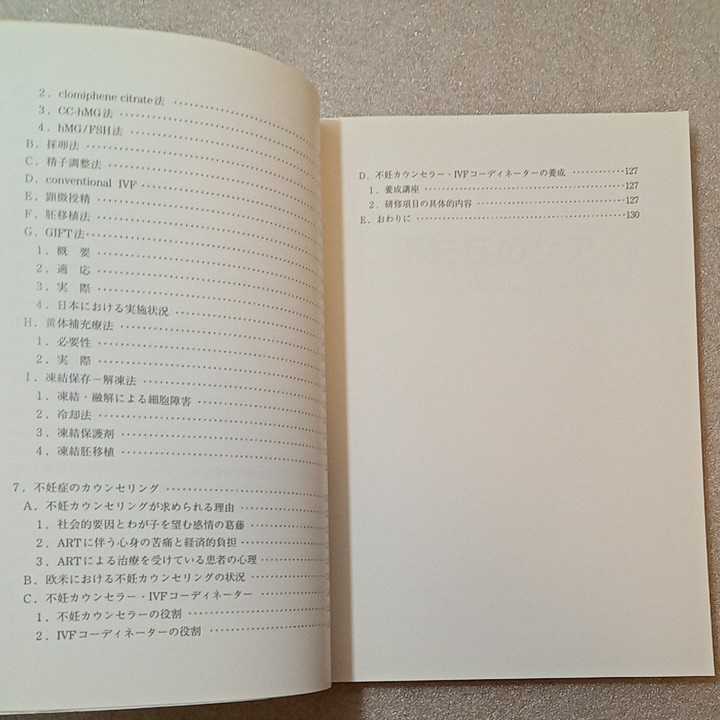 2．clomiphene citrate法 ……………
3．CC-hMG法 ……………
4．hMG/FSH法 ……………
B．採卵法 ……………
C．精子調整法 ……………
D．conventional IVF ……………
E．顕微授精 ……………
F．胚移植法 ……………
G．GIFT法 ……………
1．概　要 ……………
2．適　応 ……………
3．実　際 ……………
4．日本における実施状況 ……………
H．黄体補充療法 ……………
1．必要性 ……………
2．実　際 ……………
I．凍結保存－解凍法 ……………
1．凍結・融解による細胞障害 ……………
2．冷却法 ……………
3．凍結保護剤 ……………
4．凍結胚移植 ……………
7．不妊症のカウンセリング ……………
A．不妊カウンセリングが求められる理由 ……………
1．社会的要因とわが子を望む感情の葛藤 ……………
2．ARTに伴う心身の苦痛と経済的負担 ……………
3．ARTによる治療を受けている患者の心理 ……………
B．欧米における不妊カウンセリングの状況 ……………
C．不妊カウンセラー・IVFコーディネーター ……………
1．不妊カウンセラーの役割 ……………
2．IVFコーディネーターの役割 ……………
D．不妊カウンセラー・IVFコーディネーターの養成 ……………127
1．養成講座 ……………127
2．研修項目の具体的内容 ……………127
E．おわりに ……………130